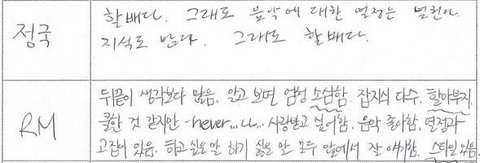 할배다. 그래도 음악에 대한 열정은 넘친다
정국
지식도 많다. 그래도 할배다.
뒤끝이 생각보다 많음. 알고 보면 엄청 소심함. 잡지식 다수. 할아부지.
RM
쿨한 것 같지만 never... 사랑받고 싶어함. 음악 좋아함. 열정과
고집이 있음. 하고 싶은 말 하기 싫은 말 모두 앞에서 잘 얘기함. 스타일 있음.